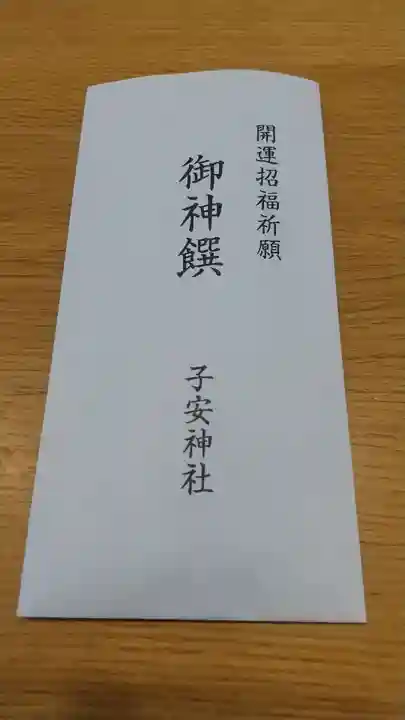 開運招福祈願
御神饌
子安神社